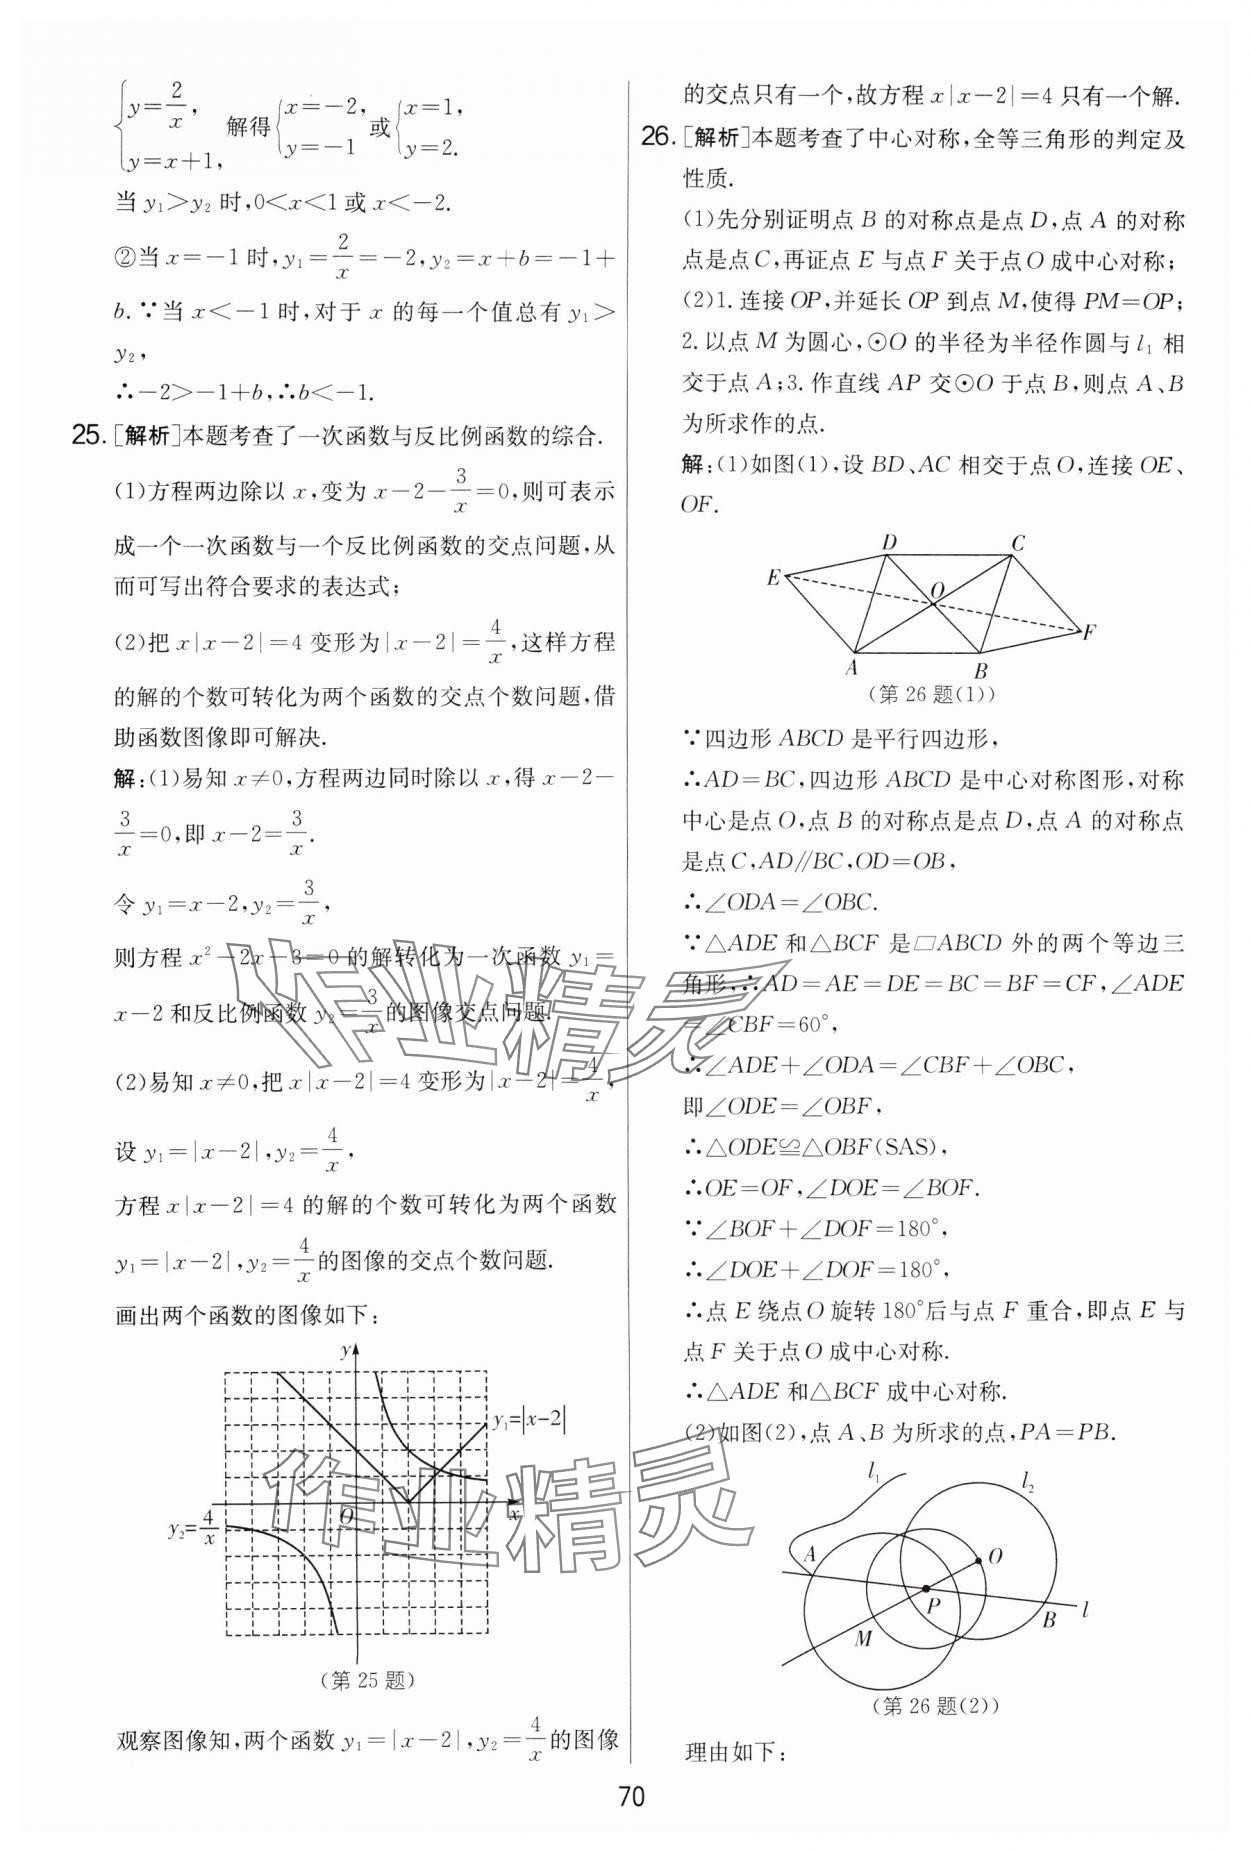 {y=2/x, y=x+1, 解得{x=-2, y=-1 或{x=1, y=2.
当 y₁>y₂ 时,0<x<1 或 x<-2.
②当 x=-1 时,y₁=2/x=-2,y₂=x+b=-1+
b.∵当 x<-1 时,对于 x 的每一个值总有 y₁>
y₂,
∴-2>-1+b,∴b<-1.
25.[解析]本题考查了一次函数与反比例函数的综合.
(1)方程两边除以 x,变为 x-2-3/x=0,则可表示
成一个一次函数与一个反比例函数的交点问题,从
而可写出符合要求的表达式;
(2)把 x|x-2|=4 变形为|x-2|=4/x,这样方程
的解的个数可转化为两个函数的交点个数问题,借
助函数图像即可解决.
解:(1)易知 x≠0,方程两边同时除以 x,得 x-2-
3/x=0,即 x-2=3/x.
令 y₁=x-2,y₂=3/x,
则方程 x²-2x-3=0 的解转化为一次函数 y₁=
x-2 和反比例函数 y₂=3/x 的图像交点问题.
(2)易知 x≠0,把 x|x-2|=4 变形为|x-2|=4/x,
设 y₁=|x-2|,y₂=4/x,
方程 x|x-2|=4 的解的个数可转化为两个函数
y₁=|x-2|,y₂=4/x的图像的交点个数问题.
画出两个函数的图像如下:
y
y₁=|x-2|
O
x
y₂=4/x
(第 25 题)
观察图像知,两个函数 y₁=|x-2|,y₂=4/x的图像
的交点只有一个,故方程 x|x-2|=4 只有一个解.
26.[解析]本题考查了中心对称,全等三角形的判定及
性质.
(1)先分别证明点 B 的对称点是点 D,点 A 的对称
点是点 C,再证点 E 与点 F 关于点 O 成中心对称;
(2)1.连接 OP,并延长 OP 到点 M,使得 PM=OP;
2.以点 M 为圆心,⊙O 的半径为半径作圆与 l₁ 相
交于点 A;3.作直线 AP 交⊙O 于点 B,则点 A、B
为所求作的点.
解:(1)如图(1),设 BD、AC 相交于点 O,连接 OE、
OF.
D C
E
O
F
A B
(第 26 题(1))
∵四边形 ABCD 是平行四边形,
∴AD=BC,四边形 ABCD 是中心对称图形,对称
中心是点 O,点 B 的对称点是点 D,点 A 的对称点
是点 C,AD∥BC,OD=OB,
∴∠ODA=∠OBC.
∵△ADE 和△BCF 是□ABCD 外的两个等边三
角形,∴AD=AE=DE=BC=BF=CF,∠ADE
=∠CBF=60°,
∴∠ADE+∠ODA=∠CBF+∠OBC,
即∠ODE=∠OBF,
∴△ODE≌△OBF(SAS),
∴OE=OF,∠DOE=∠BOF.
∵∠BOF+∠DOF=180°,
∴∠DOE+∠DOF=180°,
∴点 E 绕点 O 旋转 180°后与点 F 重合,即点 E 与
点 F 关于点 O 成中心对称.
∴△ADE 和△BCF 成中心对称.
(2)如图(2),点 A、B 为所求的点,PA=PB.
l₁ l₂
A O
P
B l
M
(第 26 题(2))
理由如下:
作业精灵
作业精灵
70